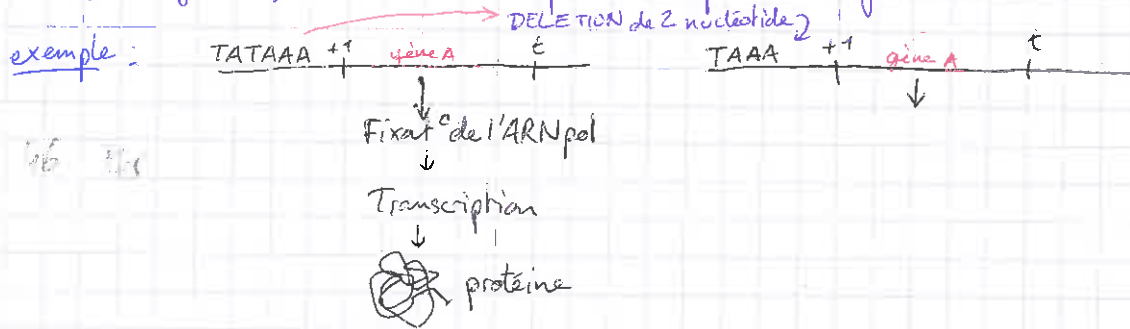 DELETION de 2 nucléotides
exemple : TATAAA +1 gène A t TAAA +1 gène A t
Fixat° de l'ARNpol
Transcription
protéine